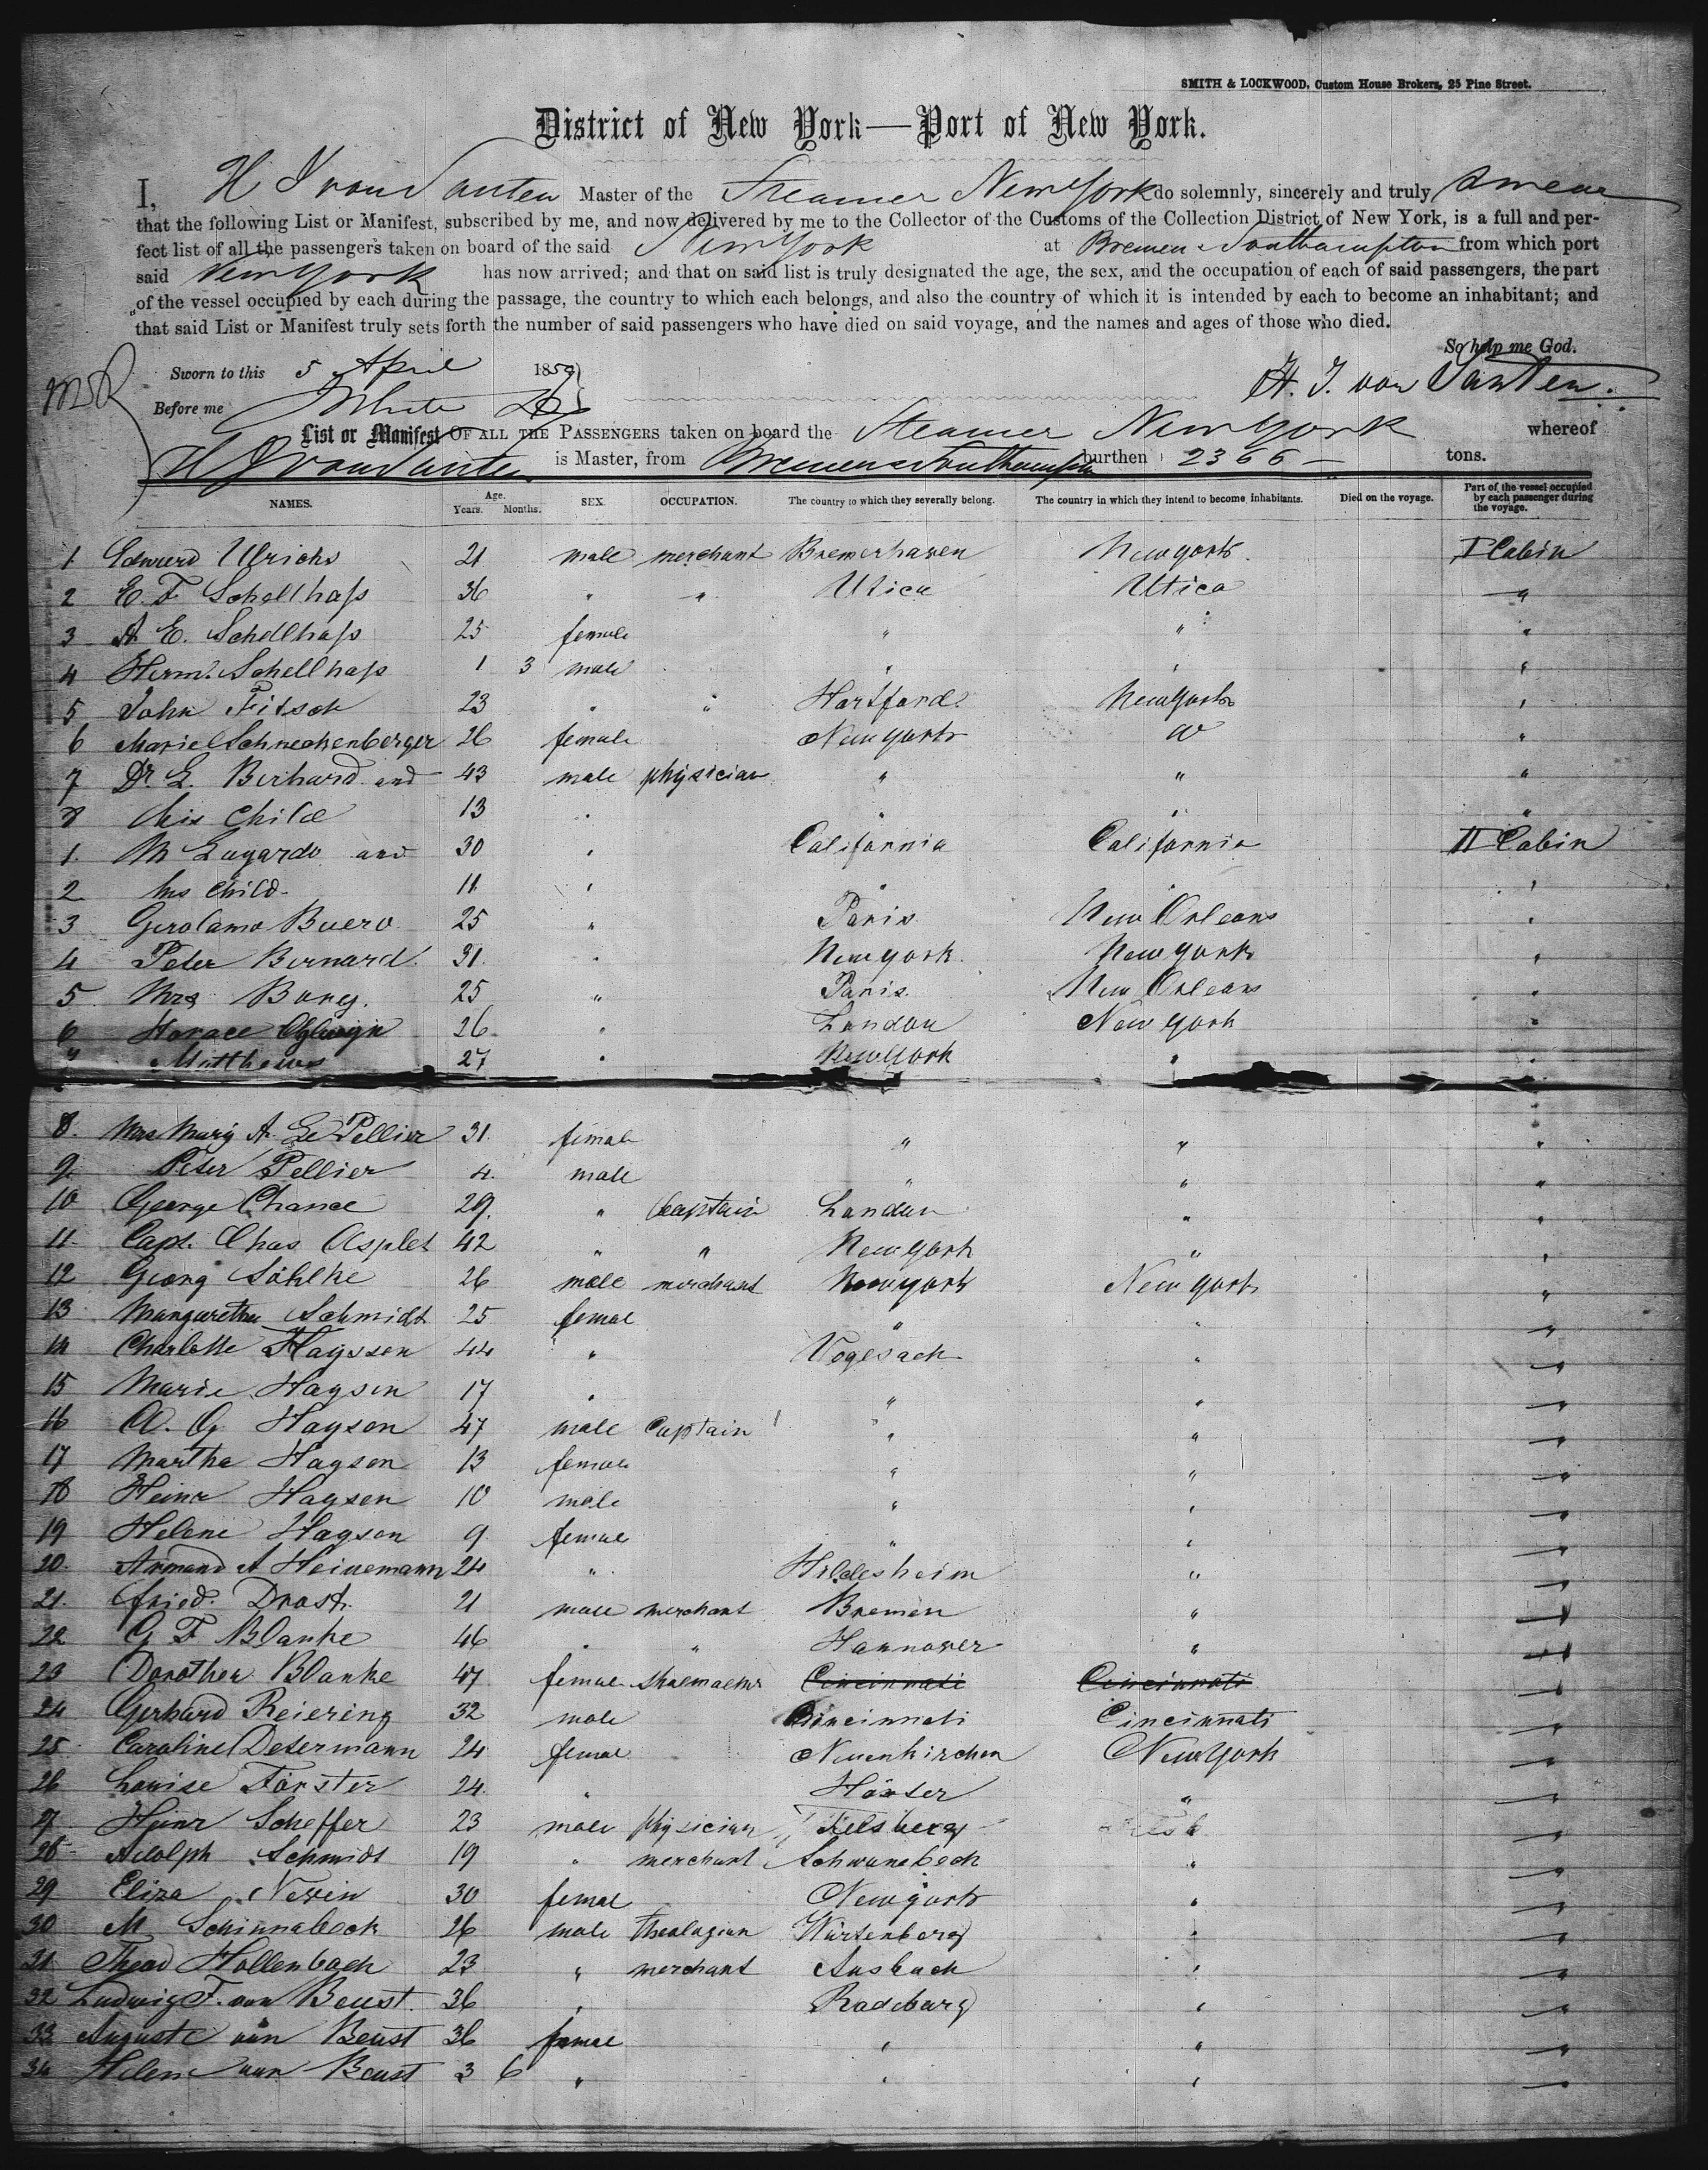 SMITH & LOCKWOOD, Custom House Brokers, 25 Pine Street.
District of New York—Port of New York.
I, H J von Santen Master of the Steamer New York do solemnly, sincerely and truly swear
that the following List or Manifest, subscribed by me, and now delivered by me to the Collector of the Customs of the Collection District of New York, is a full and per-
fect list of all the passengers taken on board of the said New York at Bremen & Southampton from which port
said New York has now arrived; and that on said list is truly designated the age, the sex, and the occupation of each of said passengers, the part
of the vessel occupied by each during the passage, the country to which each belongs, and also the country of which it is intended by each to become an inhabitant; and
that said List or Manifest truly sets forth the number of said passengers who have died on said voyage, and the names and ages of those who died.
So help me God.
Sworn to this 5 April 1859
H. J. von Santen.
Before me White
List or Manifest OF ALL THE PASSENGERS taken on board the Steamer New York whereof
H J von Santen is Master, from Bremen & Southampton burthen 2366 — tons.
NAMES. Age. Years. Months. SEX. OCCUPATION. The country to which they severally belong. The country in which they intend to become inhabitants. Died on the voyage. Part of the vessel occupied by each passenger during the voyage.
1 Edward Ulrichs 21 male merchant Bremerhaven Newyork I Cabin
2 E. F Schellhaß 36 " " Utica Utica "
3 A E. Schellhaß 25 female " " "
4 Herm. Schellhaß 1 3 male " " "
5 John Fitsch 23 " " Hartford Newyork "
6 Marie Schneckenberger 26 female Newyork do "
7 Dr. L. Berhard and 43 male physician " " "
8 his Child 13 " " " "
1. M Lugardo and 30 " California California II Cabin
2 his Child 11 " " " "
3 Gerolamo Buero 25 " Paris New Orleans "
4 Peter Bernard 31. " Newyork Newyork "
5 Mrs Burey. 25 " Paris. New Orleans "
6 Horace 26 " London New York "
7 Matthews 27 " New York " "
8. Mrs Mary A Le Pellier 31. female " " "
9. Peter Pellier 4. male " " "
10 George Chance 29. " Captain London " "
11 Capt. Chas Asplet 42 " " New York " "
12 Georg Söhlke 26 male merchant Newyork New York "
13 Margaretha Schmidt 25 female " " "
14 Charlotte Haysen 44 " Vegesack " "
15 Marie Haysen 17 " " " "
16 A. G Haysen 47 male Captain " " "
17 Martha Haysen 13 female " " "
18 Heinr Haysen 10 male " " "
19 Helene Haysen 9 female " " "
20. Armand A Heinemann 24 " Hildesheim " "
21. Fried. Drost. 21 male merchant Bremen " "
22 G F Blanke 46 " " Hannover " "
23 Dorothea Blanke 47 female shoemaker Cincinnati Cincinnati "
24 Gerhard Reiering 32 male Cincinnati Cincinnati "
25 Caroline Determann 24 female Neuenkirchen New York "
26 Louise Förster 24. " Höxter " "
27 Heinr Scheffer 23 male physician Felsberg "
28 Adolph Schmidt 19 " merchant Schwanebeck " "
29 Eliza Nevin 30 female Newyork " "
30 M Schinnabeck 26 male Theologian Würtenberg " "
31 Theod Hollenbach 23 " merchant Ansbach " "
32 Ludwig F. von Beust. 36 " Radeburg " "
33 Auguste von Beust 36 female " " "
34 Helene von Beust 3 6 " " " "